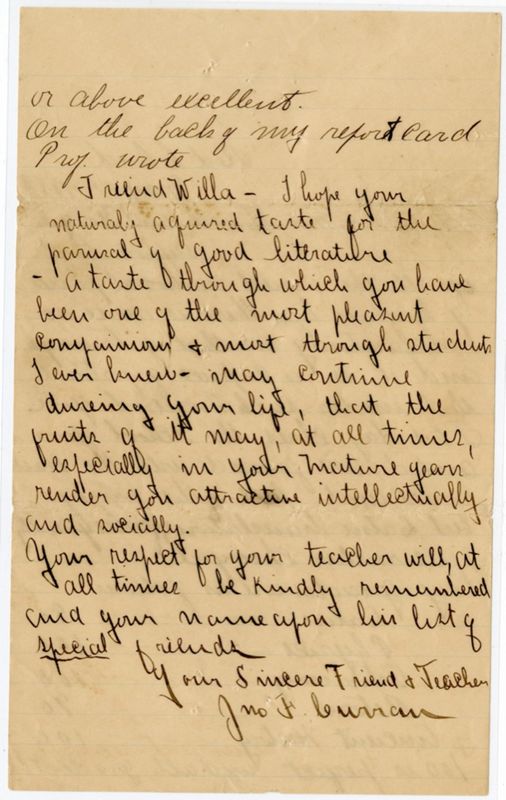 or above excellent.
On the back of my report card
Prof. wrote
Freind Willa - I hope your
naturaly aquired taste for the
parusal of good literature
- a taste through which you have
been one of the most pleasent
companions & most through students
I ever knew - may continue
dureing your life, that the
fruits of it may, at all times,
especially in your mature years
render you attractive intellectually
and socially.
Your respect for your teacher will, at
all times be kindly remembered
and your name upon his list of
special friends
Your Sincere Friend & Teacher
Jno F. Curran